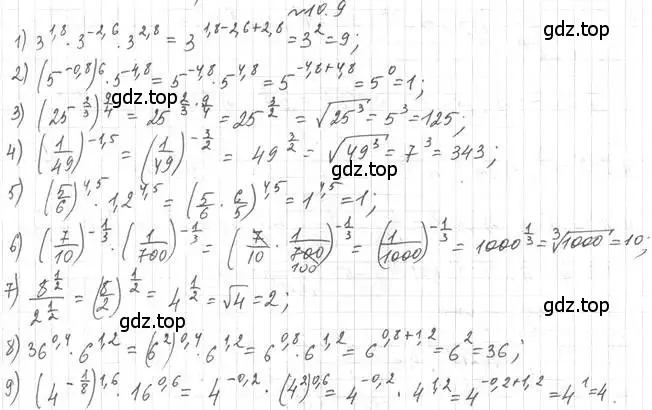 №10.9
1) 3^{1,8} · 3^{-2,6} · 3^{2,8} = 3^{1,8-2,6+2,8} = 3^2 = 9;
gdz.top
2) (5^{-0,8})^6 · 5^{-4,8} = 5^{-4,8} · 5^{4,8} = 5^{-4,8+4,8} = 5^0 = 1;
gdz.top
3) (25^{\frac{2}{3}})^{\frac{9}{4}} = 25^{\frac{2}{3}·\frac{9}{4}} = 25^{\frac{3}{2}} = √25^3 = 5^3 = 125;
gdz.top
4) (\frac{1}{49})^{-1,5} = (\frac{1}{49})^{-\frac{3}{2}} = 49^{\frac{3}{2}} = √49^3 = 7^3 = 343;
5) (\frac{5}{6})^{4,5} · 1,2^{4,5} = (\frac{5}{6} · \frac{6}{5})^{4,5} = 1^{4,5} = 1;
6) (\frac{7}{10})^{-\frac{1}{3}} · (\frac{1}{700})^{-\frac{1}{3}} = (\frac{7}{10} · \frac{1}{700})^{-\frac{1}{3}} = (\frac{1}{1000})^{-\frac{1}{3}} = 1000^{\frac{1}{3}} = ∛1000 = 10;
100
7) \frac{8^{\frac{1}{2}}}{2^{\frac{1}{2}}} = (\frac{8}{2})^{\frac{1}{2}} = 4^{\frac{1}{2}} = √4 = 2;
gdz.top
gdz.top
8) 36^{0,4} · 6^{1,2} = (6^2)^{0,4} · 6^{1,2} = 6^{0,8} · 6^{1,2} = 6^{0,8+1,2} = 6^2 = 36;
gdz.top
9) (4^{-\frac{1}{8}})^{1,6} · 16^{0,6} = 4^{-0,2} · (4^2)^{0,6} = 4^{-0,2} · 4^{1,2} = 4^{-0,2+1,2} = 4^1 = 4.
gdz.top